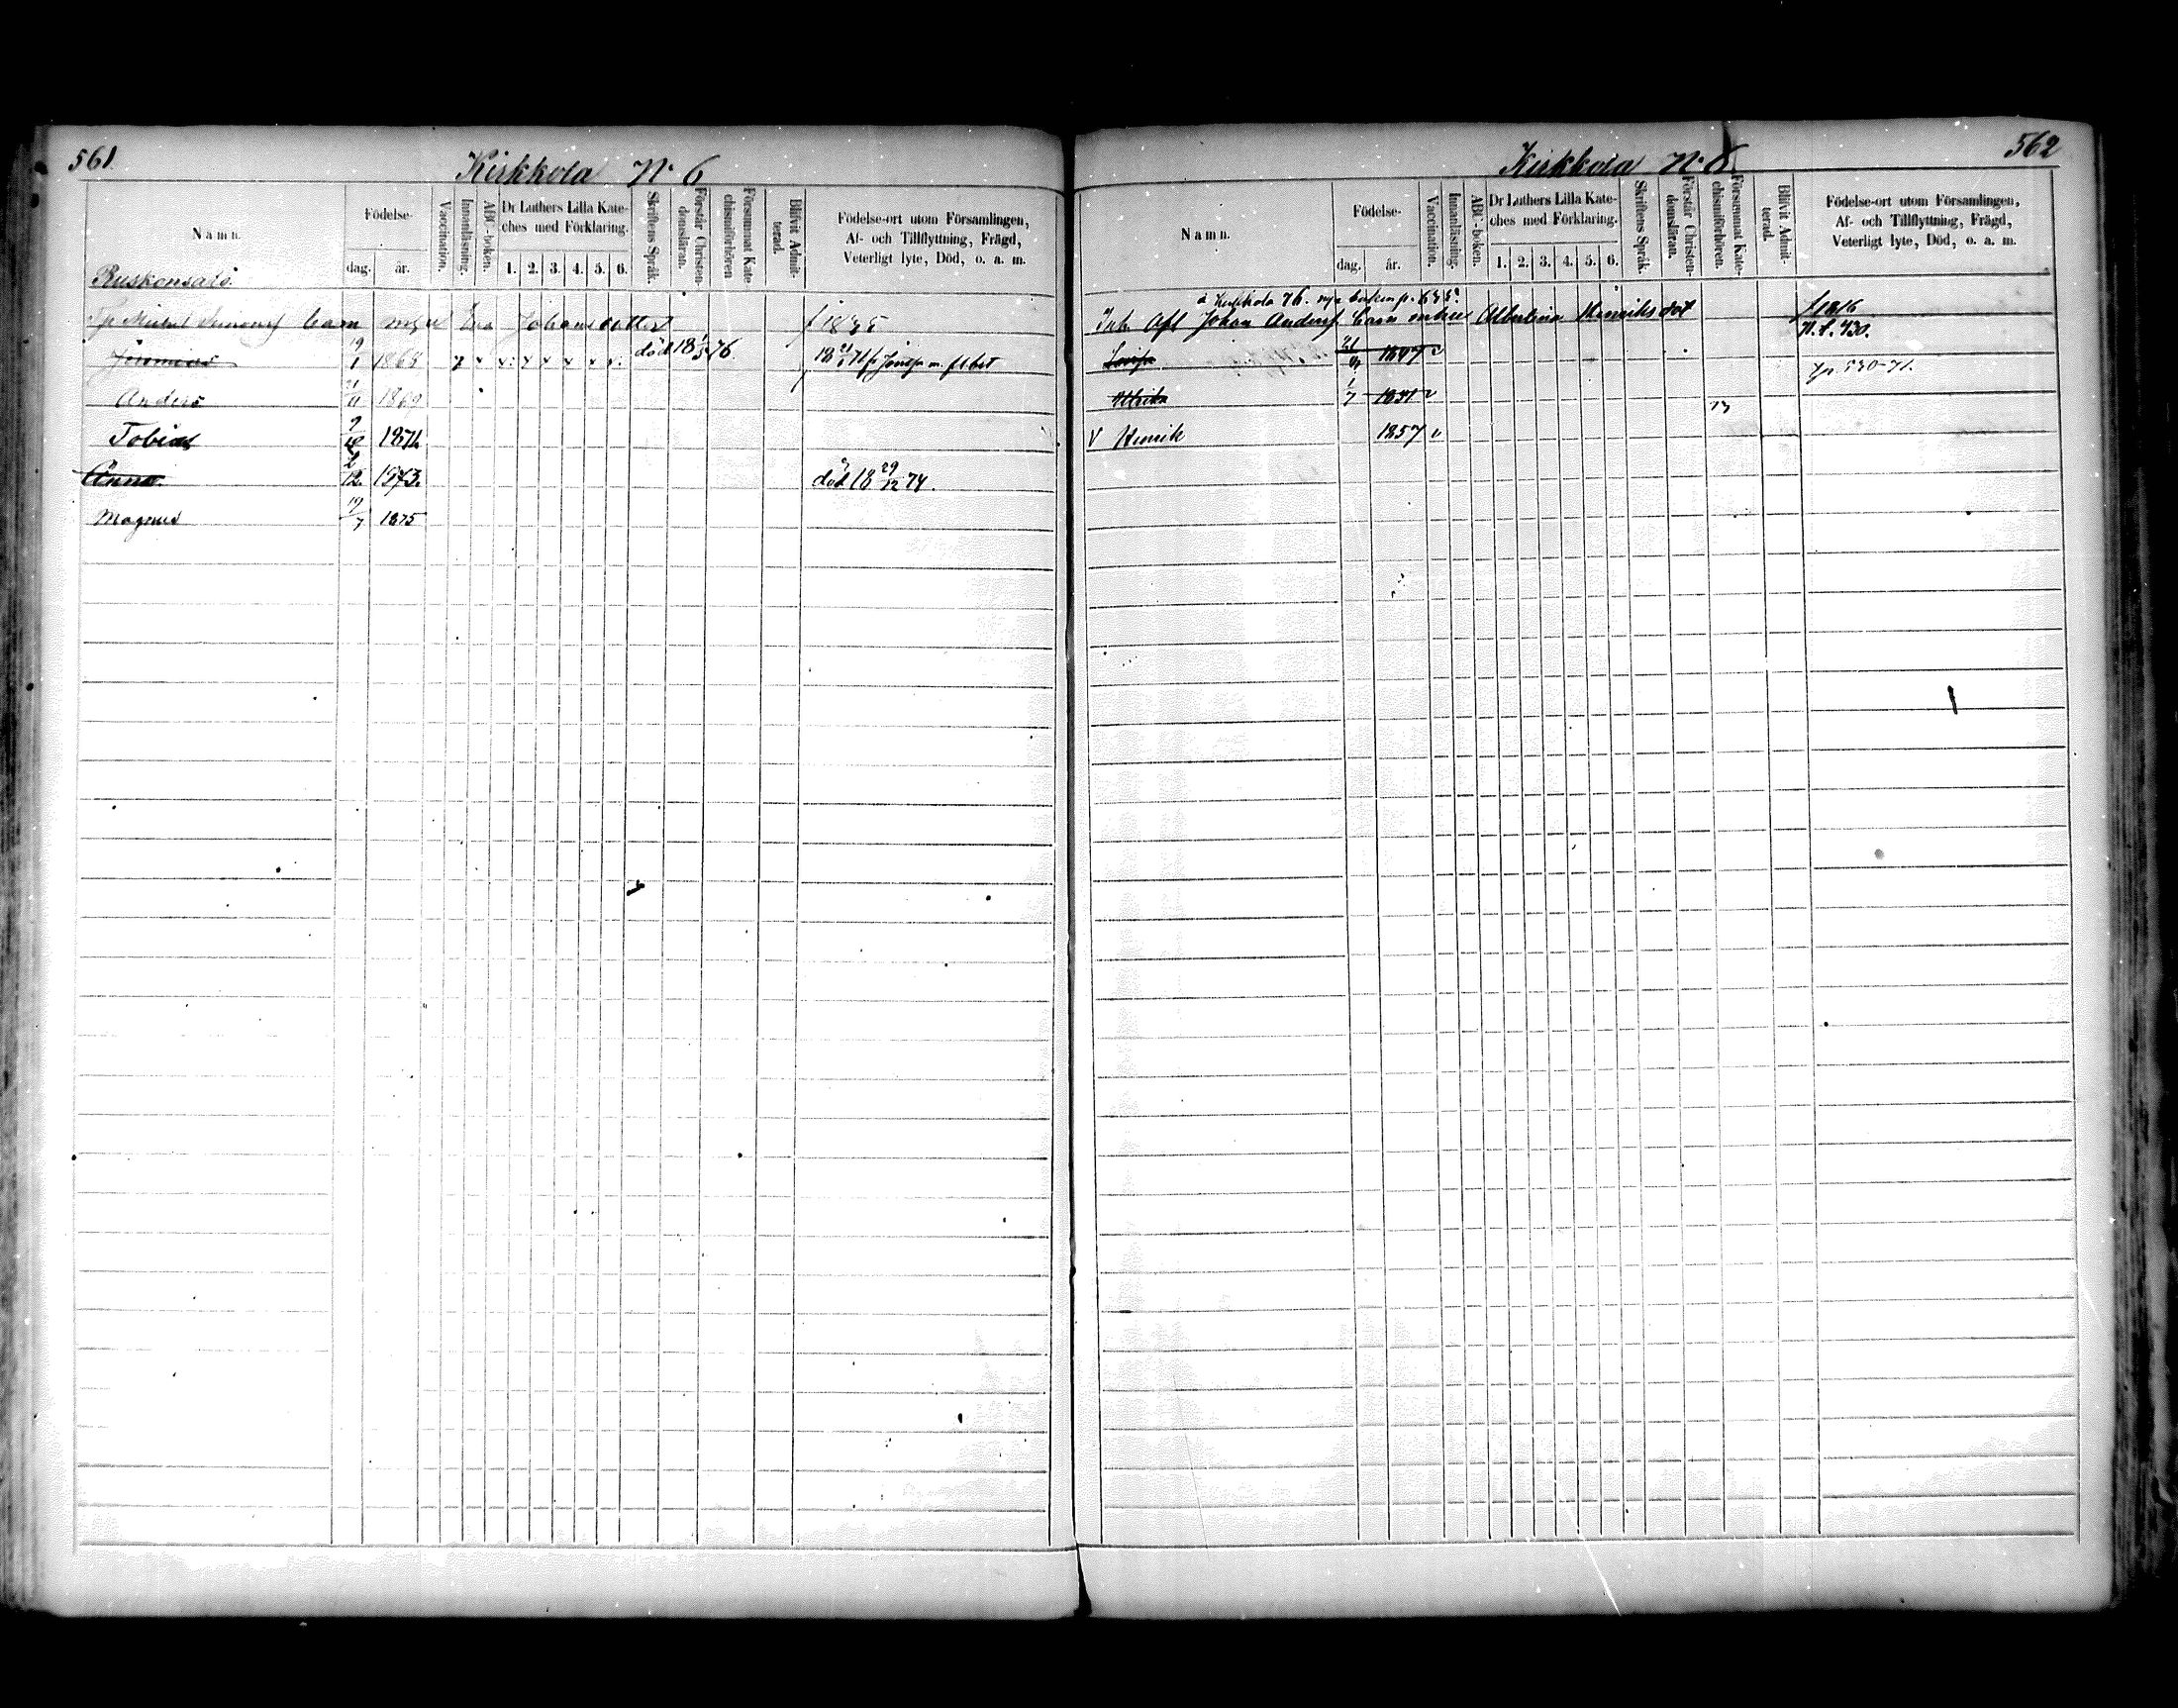 561
Kirkkola No 6
Namn.
Födelse-
dag. år.
Vaccination.
Innanläsning.
ABC-boken.
Dr Luthers Lilla Kate-
ches med Förklaring.
1. 2. 3. 4. 5. 6.
Skriftens Språk.
Förstår Christen-
domsläran.
Försummat Kate
chismiförhören
Blifvit Admit-
terad.
Födelse-ort utom Församlingen,
Af- och Tillflyttning, Frägd,
Veterligt lyte, Död, o. a. m.
Barn Eva Johansdotter
Jeremias 19/1 1868 död 18 76.
Anders 21/11 1869
Tobias 1871
Anna 12 1873. död 18 29/12 74.
Magnus 19/7 1875
562
Kirkkola No 6
Namn.
Födelse-
dag. år.
Vaccination.
Innanläsning.
ABC-boken.
Dr Luthers Lilla Kate-
ches med Förklaring.
1. 2. 3. 4. 5. 6.
Skriftens Språk.
Förstår Christen-
domsläran.
Försummat Kate-
chismiförhören.
Blifvit Admit-
terad.
Födelse-ort utom Församlingen,
Af- och Tillflyttning, Frägd,
Veterligt lyte, Död, o. a. m.
Inh. Afl Johan Andersf Barn enkan Albertina Henriks dot f 1816
Lovisa 1847
Ulrika 1/7 1851
V Henrik 1857